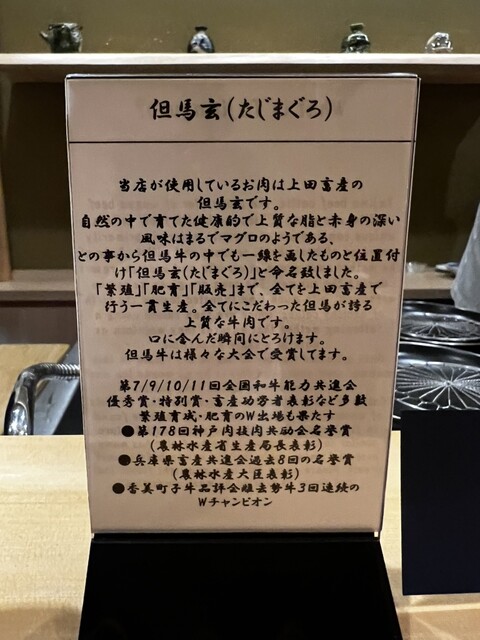 但馬玄(たじまぐろ)
当店が使用しているお肉は上田畜産の
但馬玄です。
自然の中で育てた健康的で上質な脂と赤身の深い
風味はまるでマグロのようである、
との事から但馬牛の中でも一線を画したものと位置付
け「但馬玄(たじまぐろ)」と命名致しました。
「繁殖」「肥育」「販売」まで、全てを上田畜産で
行う一貫生産。全てにこだわった但馬が誇る
上質な牛肉です。
口に含んだ瞬間にとろけます。
但馬牛は様々な大会で受賞してます。
第7/9/10/11回全国和牛能力共進会
優秀賞・特別賞・畜産功労者表彰など多数
繁殖育成・肥育のW出場も果たす
●第178回神戸肉枝肉共励会名誉賞
(農林水産省生産局長表彰)
●兵庫県畜産共進会過去8回の名誉賞
(農林水産大臣表彰)
●香美町子牛品評会雌去勢牛3回連続の
Wチャンピオン